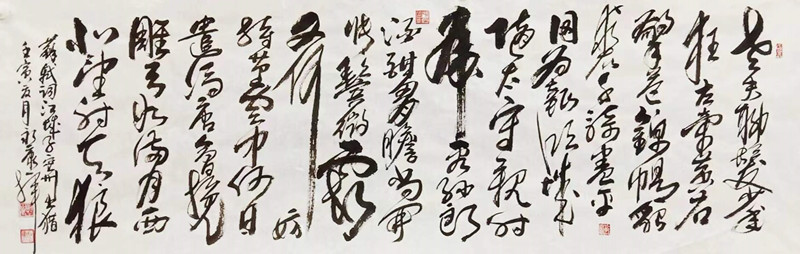 老夫聊發少年
狂左牽黃右
擎蒼錦帽貂
裘千騎卷平
岡為報傾城
隨太守親射
虎看孫郎
酒酣胸膽尚開
張鬢微霜
又何妨
持節雲中何日
遣馮唐會挽
雕弓如滿月西
北望射天狼
蘇軾詞江城子密州出獵
壬寅 月永康